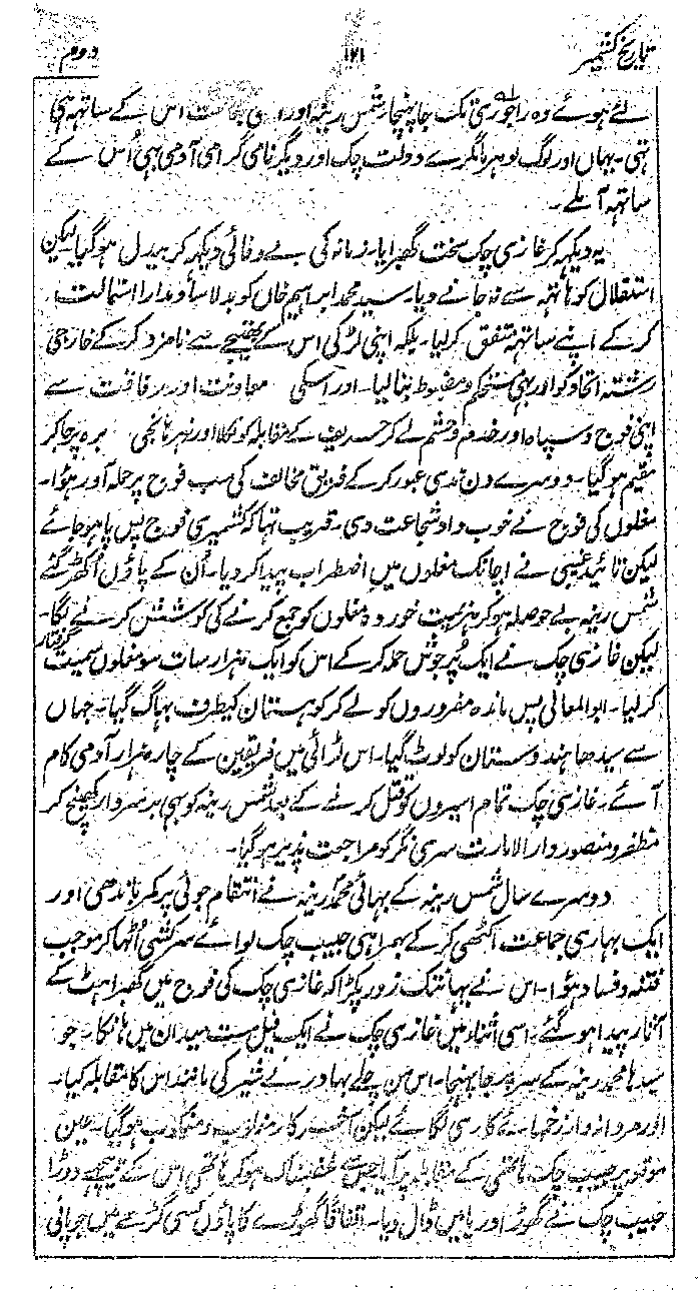 تاریخ کشمیر ۱۶۱ دوم
لئے ہوئے وہ راجوری تک جا پہنچا۔ شمس رینہ اور اس کے ساتھہ ہی
تہی۔ یہاں اور لوگ لوہر ماگرے دولت چک اور دیگر نامی گرامی آدمی بہی اُس کے
ساتھہ آملے۔
یہ دیکہہ کر غازی چک سخت گھبرایا۔ زمانہ کی بے وفائی دیکہہ کر بیدل ہوگیا لیکن
استقلال کو ہاتہہ سے نہ جانے دیا۔ سید محمد ابراہیم خاں کو بدلاسا و مدارا استمالت
کرکے اپنے ساتہہ متفق کرلیا۔ بلکہ اپنی لڑکی اس کے بھتیجے سے نامزد کرکے خارجی
رشتہ اتحاد کو اور بہی مستحکم و مضبوط بنالیا۔ اور اسکی معاونت اور رفاقت سے
اپنی فوج و سپاہ اور خدم و حشم لے کر حریف کے مقابلہ کو نکلا اور نہر ہانجی برہ پر جاکر
مقیم ہوگیا۔ دوسرے دن ندی عبور کرکے فریق مخالف کی سب فوج پر حملہ آور ہوا۔
مغلوں کی فوج نے خوب داد شجاعت دی۔ قریب تہا کہ کشمیری فوج پس پا ہوجائے
لیکن تائید غیبی نے اچانک مغلوں میں اضطراب پیدا کردیا۔ اُن کے پاؤں اُکھڑ گئے
شمس رینہ بے حوصلہ ہوکر ہزیمت خوردہ مغلوں کو جمع کرنے کی کوشش کرنے لگا۔
لیکن غازی چک نے ایک پُرجوش حملہ کرکے اس کو ایک ہزار سات سو مغلوں سمیت گرفتار
کرلیا۔ ابوالمعالی پس ماندہ مفروروں کو لے کر کوہستان کیطرف بہاگ گیا۔ جہاں
سے سیدھا ہندوستان کو لوٹ گیا۔ اس لڑائی میں فریقین کے چار ہزار آدمی کام
آئے۔ غازی چک تمام اسیروں کو قتل کرنے کے بعد شمس رینہ کو بہی بر سردار کھینچ کر
مظفر و منصور دارالامارت سری نگر کو مراجعت پذیر ہوگیا۔
دوسرے سال شمس رینہ کے بہائی محمد رینہ نے انتقام جوئی پر کمر باندھی اور
ایک بہاری جماعت اکٹھی کرکے بہمراہی حبیب چک لوائے سرکشی اُٹھا کر موجب
فتنہ و فساد ہوا۔ اس نے یہانتک زور پکڑا کہ غازی چک کی فوج میں گھبراہٹ کے
آثار پیدا ہوگئے۔ اسی اثناء میں غازی چک نے ایک فیل مست میدان میں ہانکا۔ جو
سیدھا محمد رینہ کے سر پر جا پہنچا۔ اس من چلے بہادر نے شیر کی مانند اس کا مقابلہ کیا۔
اور مردانہ وار زخمہائے کاری لگائے لیکن آخر کار مغلوب و منکوب ہوگیا۔ عین
موقعہ پر حبیب چک ہاتھی کے مقابلہ پر آیا جس سے غضبناک ہوکر ہاتھی اس کے پیچھے دوڑا
حبیب چک نے گھوڑا دریا میں ڈال دیا۔ اتفاقاً گھوڑے کا پاؤں کسی گڑھے میں جو پانی